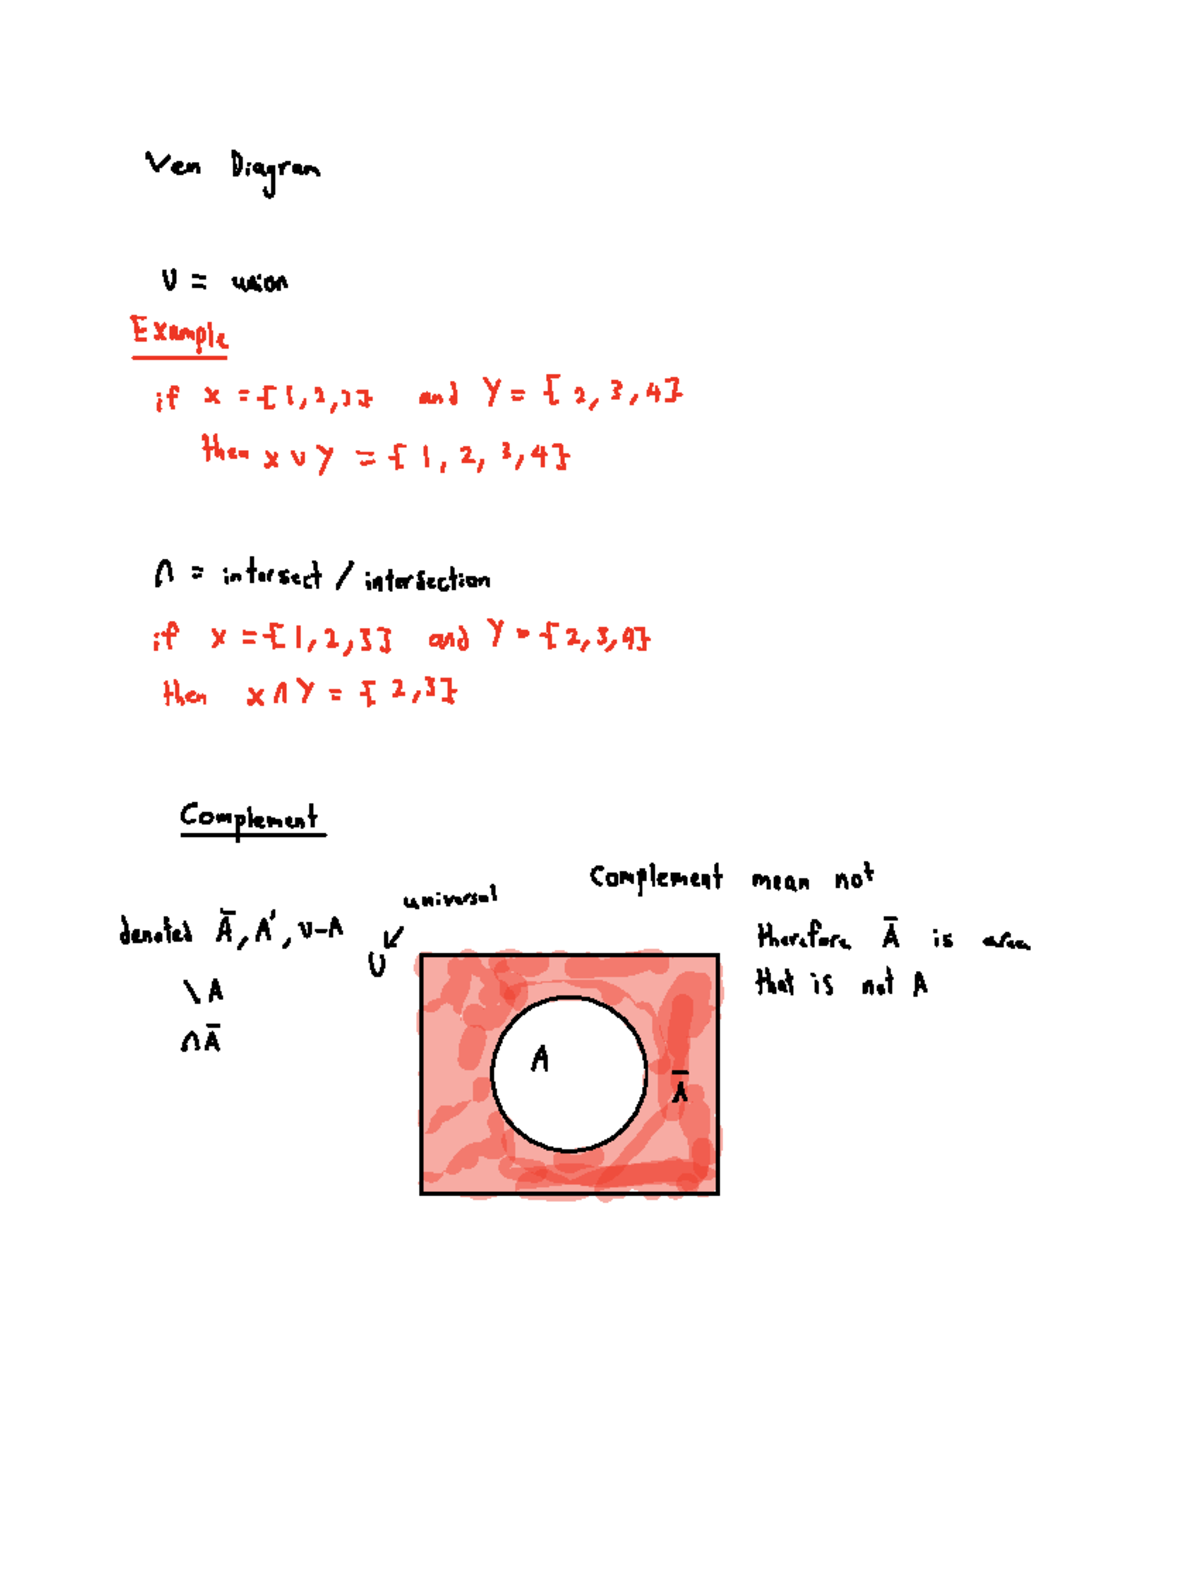 Ven Diagram
U = union
Example
if x = {1,2,3} and Y = { 2, 3, 4}
then x ∪ y = { 1, 2, 3, 4}
∩ = intersect / intersection
if x = {1, 2, 3} and Y = {2, 3, 4}
then x ∩ Y = { 2, 3}
Complement
Complement mean not
universal
denoted A̅, A', U-A
U
therefore A̅ is area
that is not A
\ A
∩ A̅
A
A̅